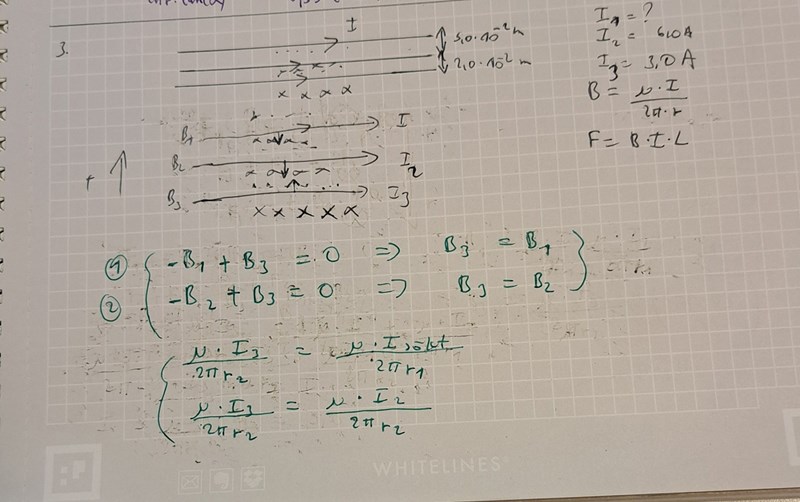 3.
I
3,0·10⁻² m
2,0·10⁻² m
x x x x
I₁ = ?
I₂ = 6,0 A
I₃ = 3,0 A
B = μ·I / 2π·r
F = B·I·L
B₁ I
B₂ I₂
+ ↑
B₃ I₃
x x x x x
① -B₁ + B₃ = 0 => B₃ = B₁
② -B₂ + B₃ = 0 => B₃ = B₂
μ·I₃ / 2πr₂ = μ·I sökt / 2πr₁
μ·I₃ / 2πr₂ = μ·I₂ / 2πr₂
WHITELINES